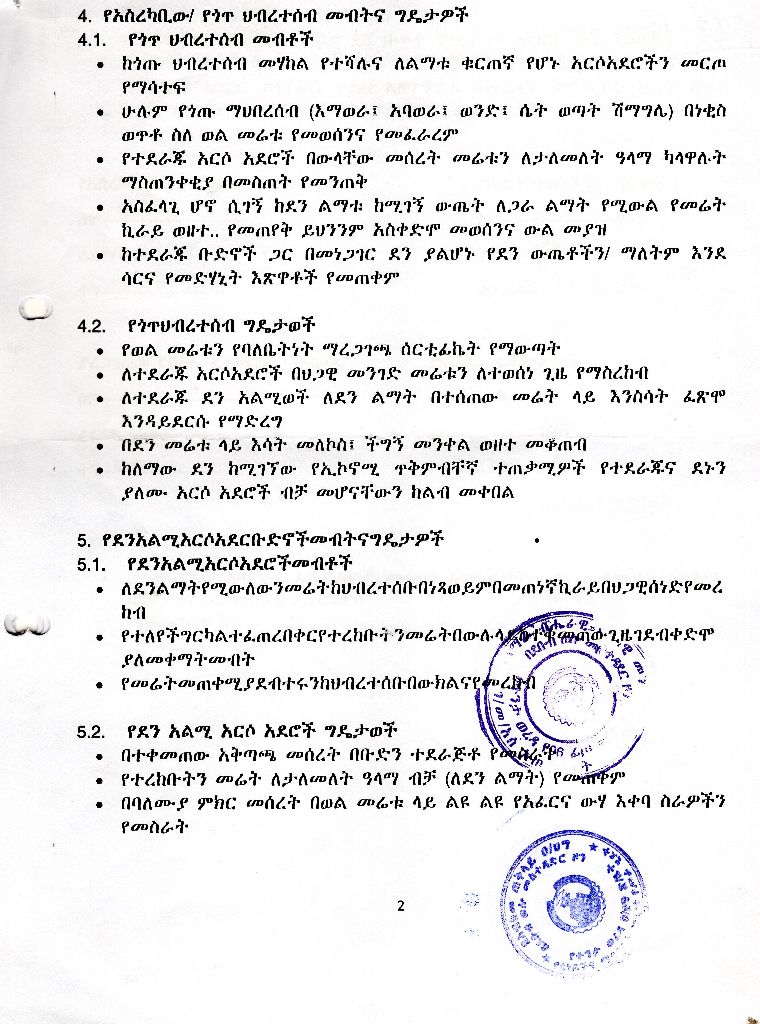 4. የአስረካቢው/ የጎጥ ህብረተሰብ መብትና ግዴታዎች
4.1. የጎጥ ህብረተሰብ መብቶች
• ከጎጡ ህብረተሰብ መሃከል የተሻሉና ለልማቱ ቁርጠኛ የሆኑ አርሶአደሮችን መርጦ
የማሳተፍ
• ሁሉም የጎጡ ማህበረሰብ (እማወራ፤ አባወራ፤ ወንድ፤ ሴት ወጣት ሽማግሌ) በነቂስ
ወጥቶ ስለ ወል መሬቱ የመወሰንና የመፈራረም
• የተደራጁ አርሶ አደሮች በውላቸው መሰረት መሬቱን ለታለመለት ዓላማ ካላዋሉት
ማስጠንቀቂያ በመስጠት የመንጠቅ
• አስፈላጊ ሆኖ ሲገኝ ከደን ልማቱ ከሚገኝ ውጤት ለጋራ ልማት የሚውል የመሬት
ኪራይ ወዘተ.. የመጠየቅ ይህንንም አስቀድሞ መወሰንና ውል መያዝ
• ከተደራጁ ቡድኖች ጋር በመነጋገር ደን ያልሆኑ የደን ውጤቶችን/ ማለትም እንደ
ሳርና የመድሃኒት እጽዋቶች የመጠቀም
4.2. የጎጥህብረተሰብ ግዴታወች
• የወል መሬቱን የባለቤትነት ማረጋገጫ ሰርቲፊኬት የማውጣት
• ለተደራጁ አርሶአደሮች በህጋዊ መንገድ መሬቱን ለተወሰነ ጊዜ የማስረከብ
• ለተደራጁ ደን አልሚወች ለደን ልማት በተሰጠው መሬት ላይ እንስሳት ፈጽሞ
እንዳይደርሱ የማድረግ
• በደን መሬቱ ላይ እሳት መለኮስ፤ ችግኝ መንቀል ወዘተ መቆጠብ
• ከለማው ደን ከሚገኘው የኢኮኖሚ ጥቅምብቸኛ ተጠቃሚዎች የተደራጁና ደኑን
ያለሙ አርሶ አደሮች ብቻ መሆናቸውን ከልብ መቀበል
5. የደንአልሚአርሶአደርቡድኖችመብትናግዴታዎች
5.1. የደንአልሚአርሶአደሮችመብቶች
• ለደንልማትየሚውለውንመሬትከህብረተሰቡበነጻወይምበመጠነኛኪራይበህጋዊሰነድየመረ
ከብ
• የተለየችግርካልተፈጠረበቀርየተረከቡትንመሬትበውሉላይ
ያለመቀማትመብት
• የመሬትመጠቀሚያደብተሩንከህብረተሰቡበውክልናየመረከብ
5.2. የደን አልሚ አርሶ አደሮች ግዴታወች
• በተቀመጠው አቅጣጫ መሰረት በቡድን ተደራጅቶ የመስራት
• የተረከቡትን መሬት ለታለመለት ዓላማ ብቻ (ለደን ልማት) የመጠቀም
• በባለሙያ ምክር መሰረት በወል መሬቱ ላይ ልዩ ልዩ የአፈርና ውሃ እቀባ ስራዎችን
የመስራት
2